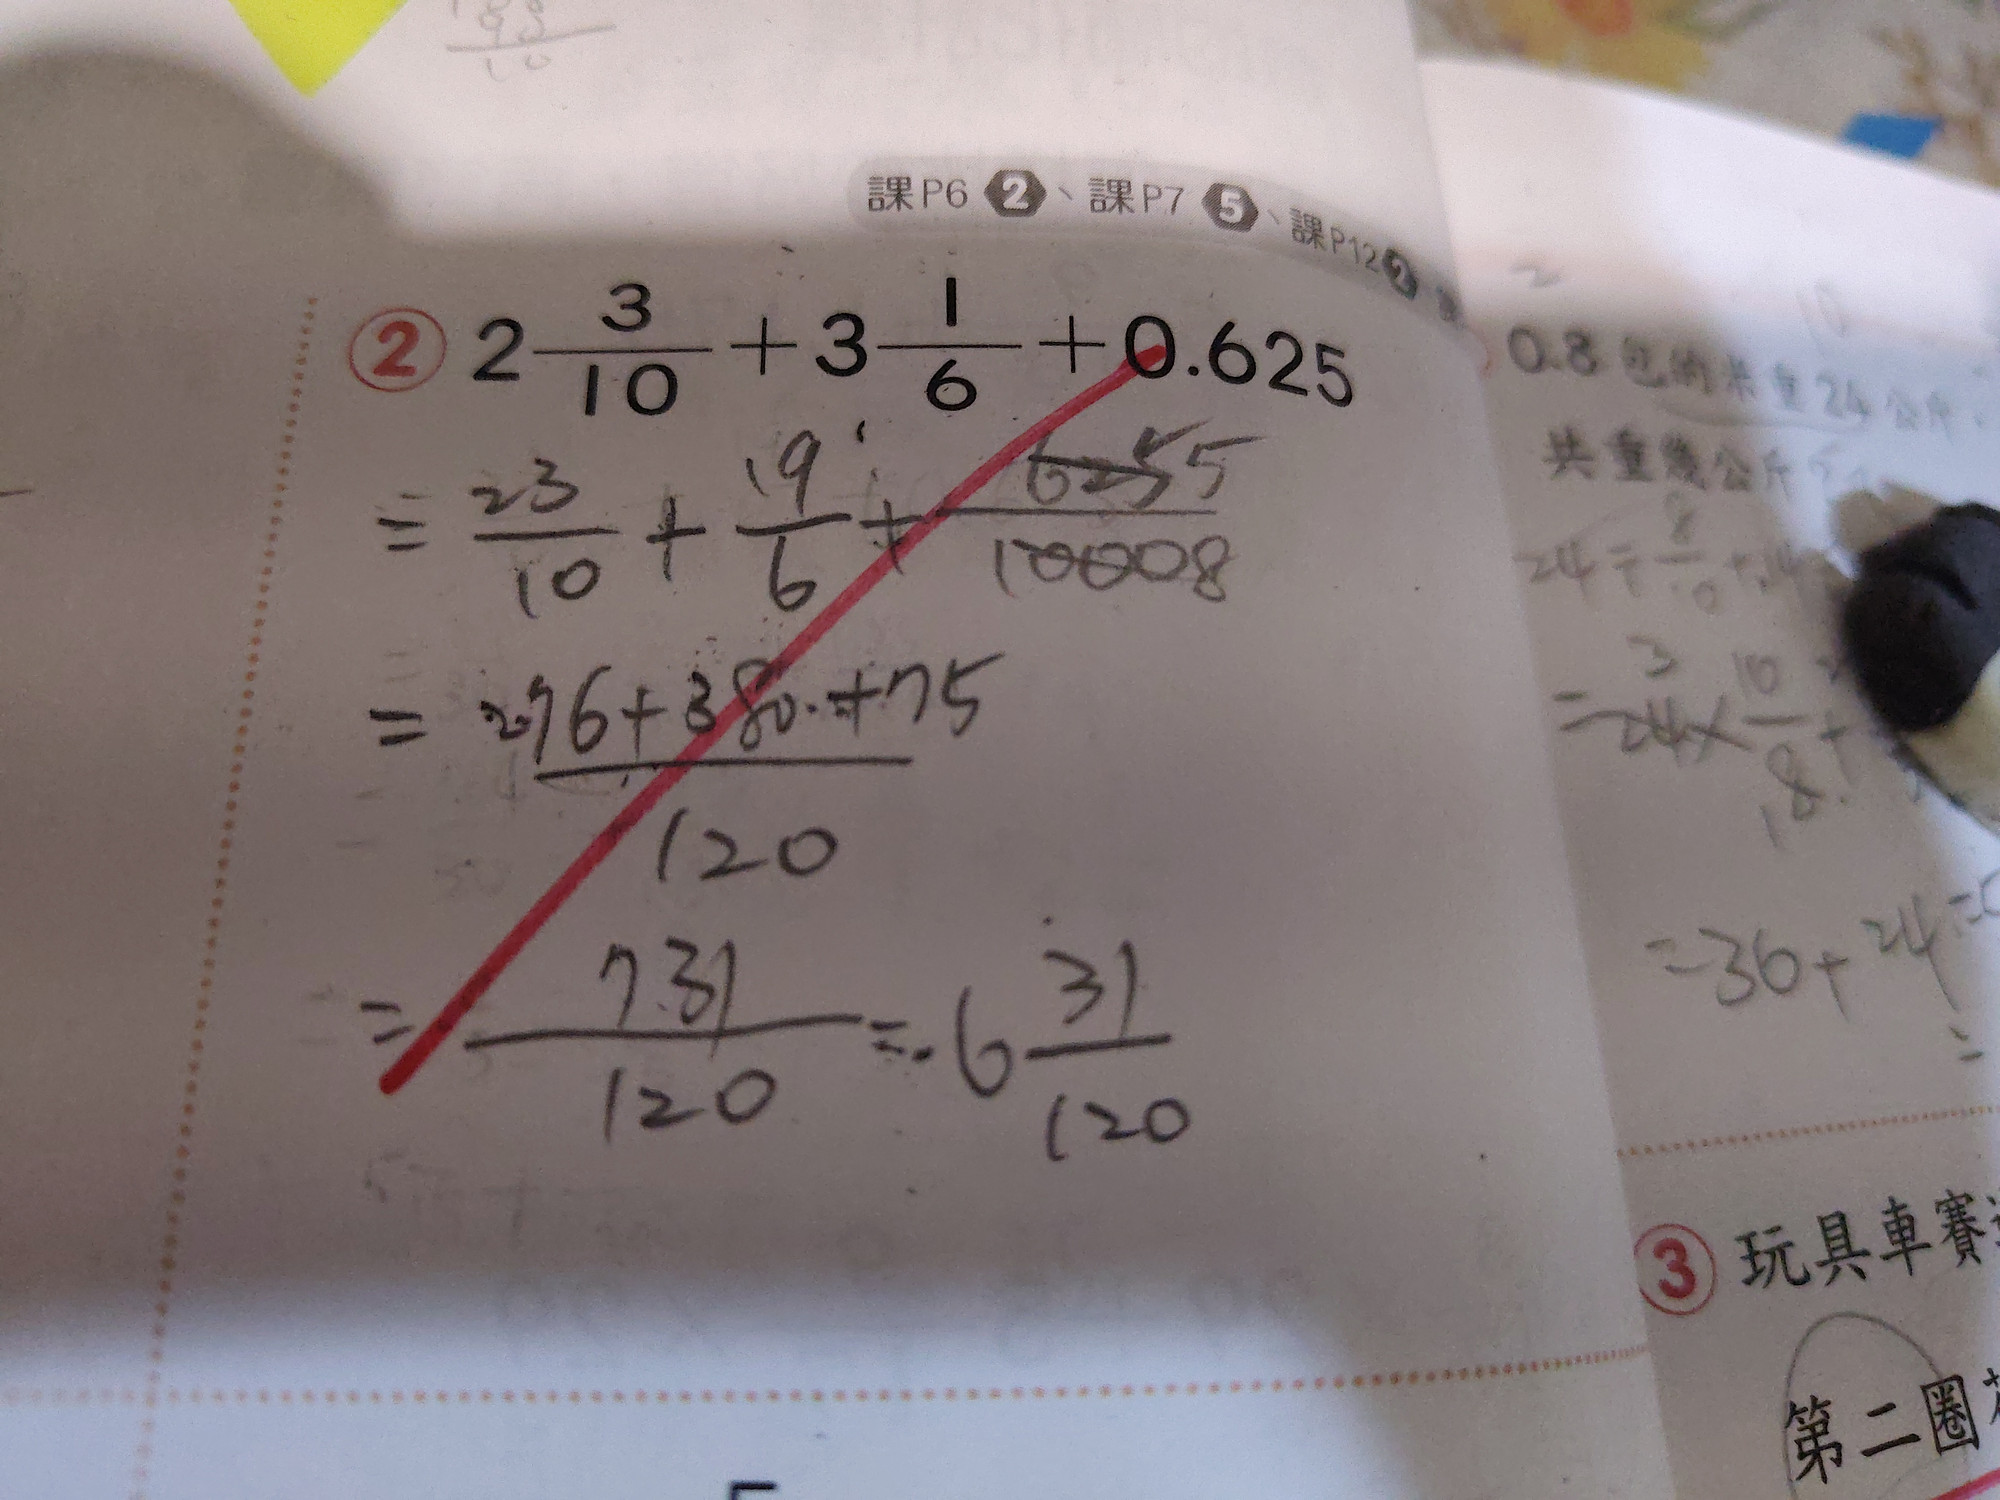 課P6 2、課P7 5、課P12 2
② 2 3/10 + 3 1/6 + 0.625
= 23/10 + 19/6 + 5/8
= 276+380+75/120
= 731/120 = 6 31/120
0.8 包的米重24公斤,
共重幾公斤
24÷8/10+24
=24×10/8+
=36+24=
=
③ 玩具車賽
第二圈